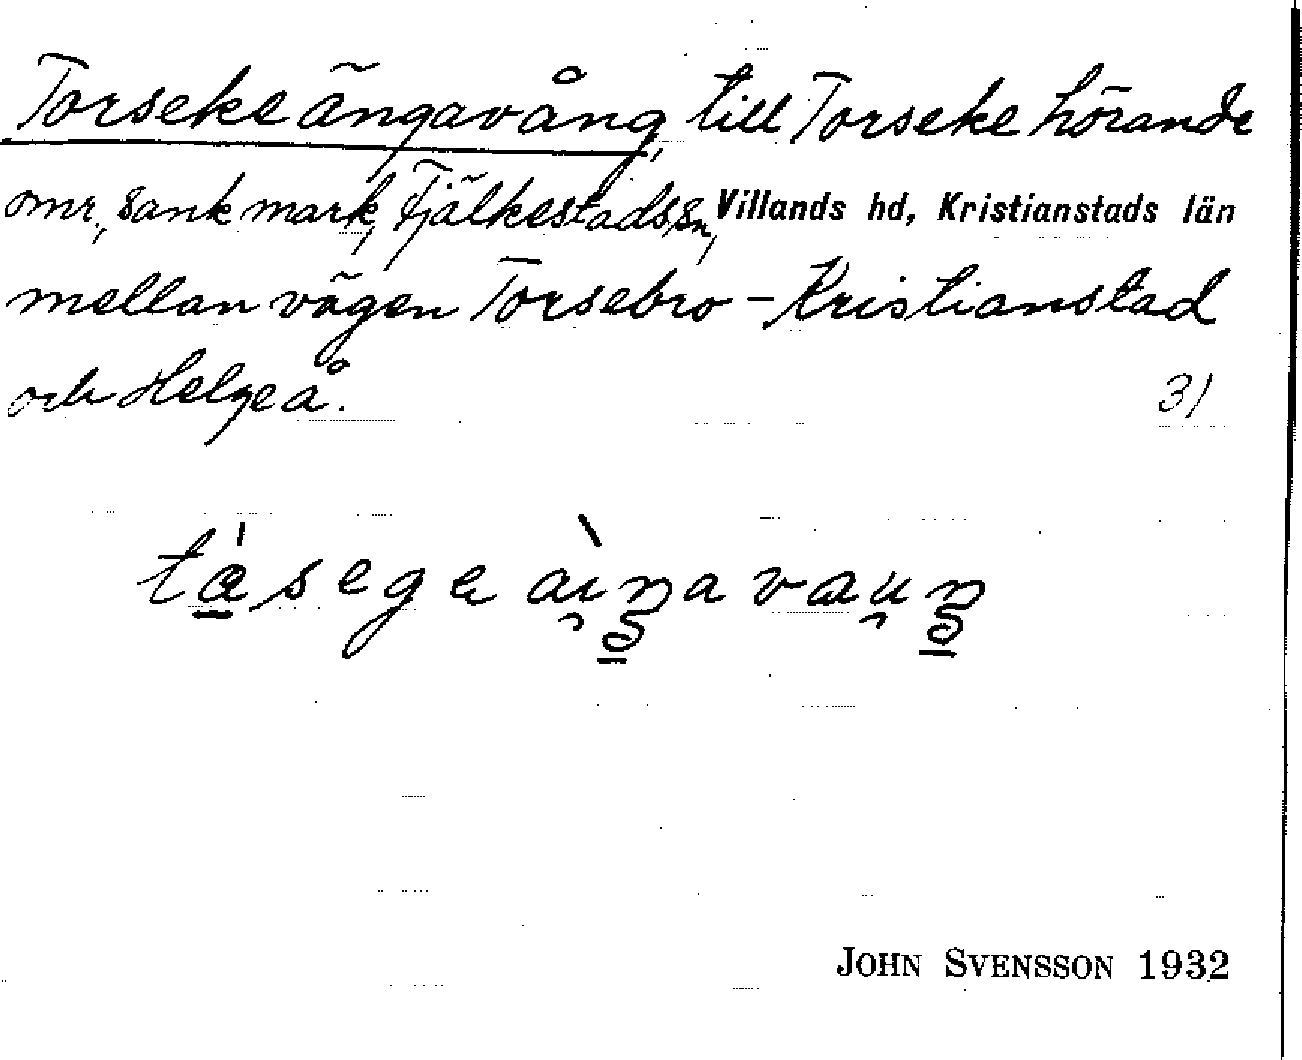 Torseke ängavång, till Torseke hörande
omr., sank mark, Fjälkestads sn, Villands hd, Kristianstads län
mellan vägen Torsebro - Kristianstad
och Helgeå.
31
JOHN SVENSSON 1932